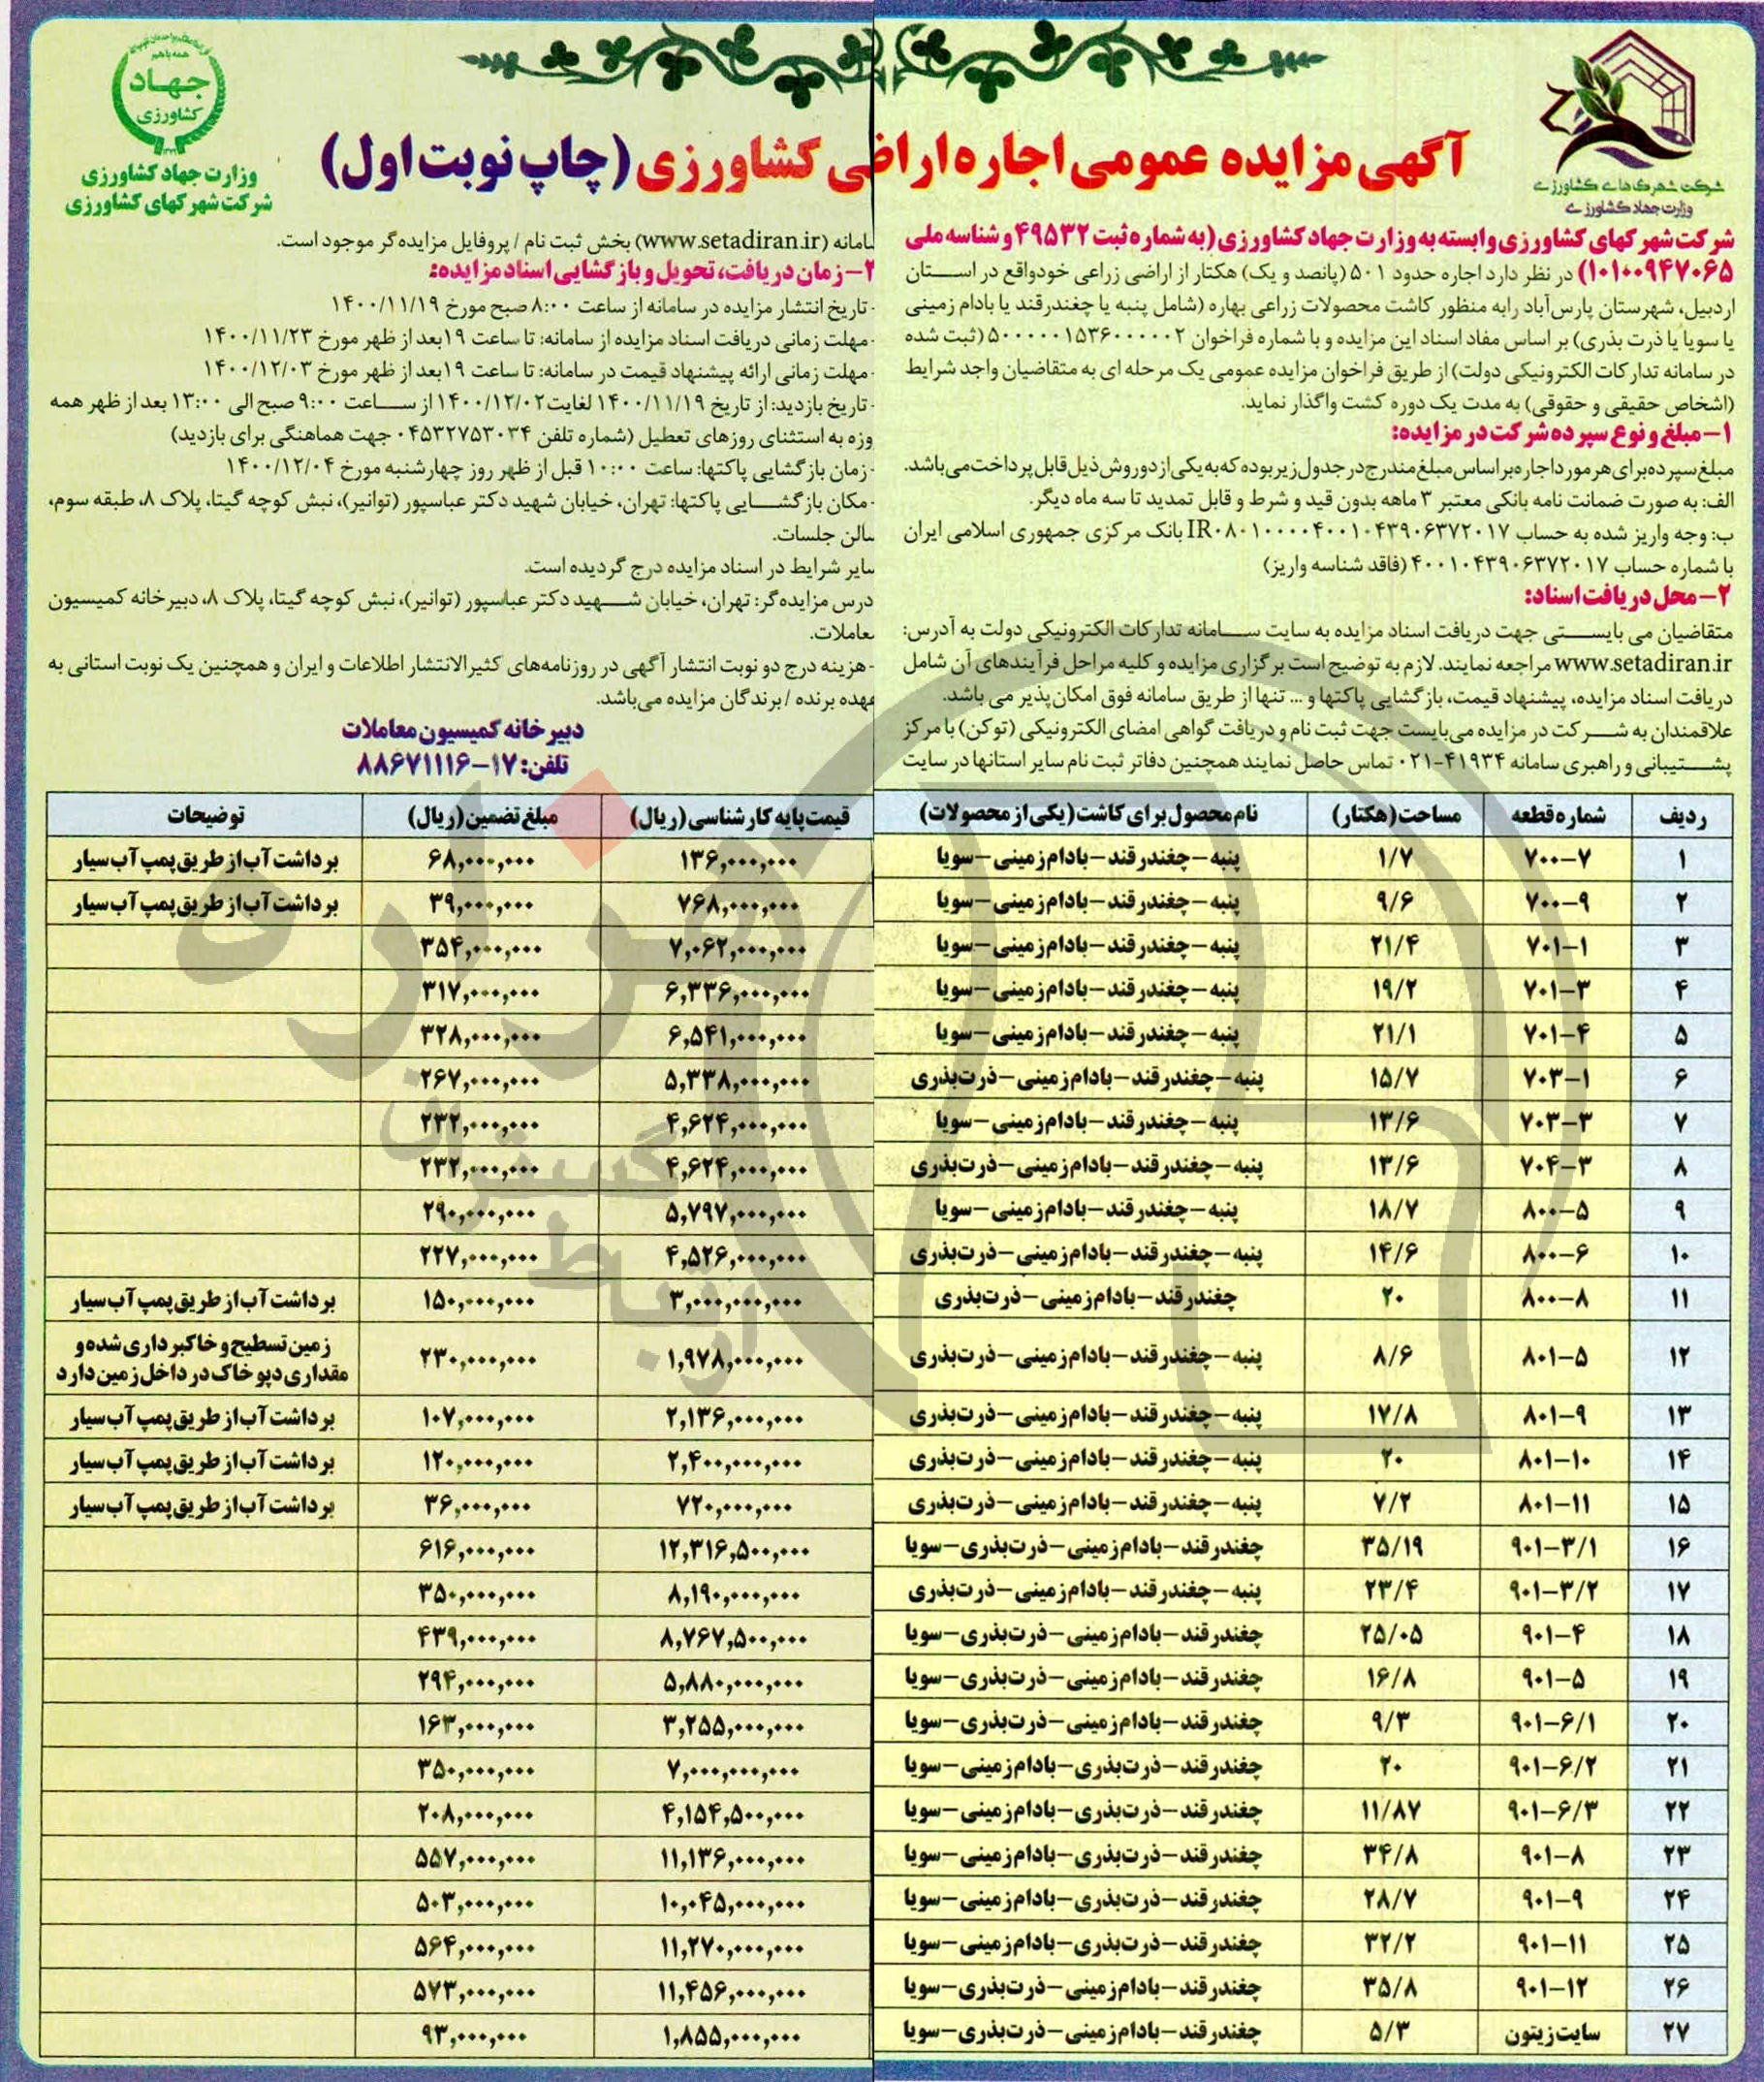 همه با هم
جهاد
کشاورزی
وزارت جهاد کشاورزی
شرکت شهرکهای کشاورزی
شرکت شهرک‌های کشاورزی
وزارت جهاد کشاورزی
آگهی مزایده عمومی اجاره اراضی کشاورزی (چاپ نوبت اول)
شرکت شهرکهای کشاورزی وابسته به وزارت جهاد کشاورزی (به شماره ثبت ۴۹۵۳۲ و شناسه ملی
۱۰۱۰۰۹۴۷۰۶۵) در نظر دارد اجاره حدود ۵۰۱ (پانصد و یک) هکتار از اراضی زراعی خود واقع در اســـتان
اردبیل، شهرستان پارس‌آباد را به منظور کاشت محصولات زراعی بهاره (شامل پنبه یا چغندرقند یا بادام زمینی
یا سویا یا ذرت بذری) بر اساس مفاد اسناد این مزایده و با شماره فراخوان ۵۰۰۰۰۰۱۵۳۶۰۰۰۰۰۲ (ثبت شده
در سامانه تدارکات الکترونیکی دولت) از طریق فراخوان مزایده عمومی یک مرحله ای به متقاضیان واجد شرایط
(اشخاص حقیقی و حقوقی) به مدت یک دوره کشت واگذار نماید.
۱- مبلغ و نوع سپرده شرکت در مزایده:
مبلغ سپرده برای هر مورد اجاره بر اساس مبلغ مندرج در جدول زیر بوده که به یکی از دو روش ذیل قابل پرداخت می‌باشد.
الف: به صورت ضمانت نامه بانکی معتبر ۳ ماهه بدون قید و شرط و قابل تمدید تا سه ماه دیگر.
ب: وجه واریز شده به حساب IR۰۸۰۱۰۰۰۰۴۰۰۱۰۴۳۹۰۶۳۷۲۰۱۷ بانک مرکزی جمهوری اسلامی ایران
با شماره حساب ۴۰۰۱۰۴۳۹۰۶۳۷۲۰۱۷ (فاقد شناسه واریز)
۲- محل دریافت اسناد:
متقاضیان می بایســـتی جهت دریافت اسناد مزایده به سایت ســـامانه تدارکات الکترونیکی دولت به آدرس:
www.setadiran.ir مراجعه نمایند. لازم به توضیح است برگزاری مزایده و کلیه مراحل فرآیندهای آن شامل
دریافت اسناد مزایده، پیشنهاد قیمت، بازگشایی پاکتها و ... تنها از طریق سامانه فوق امکان‌پذیر می باشد.
علاقمندان به شـــرکت در مزایده می‌بایست جهت ثبت نام و دریافت گواهی امضای الکترونیکی (توکن) با مرکز
پشـــتیبانی و راهبری سامانه ۴۱۹۳۴-۰۲۱ تماس حاصل نمایند همچنین دفاتر ثبت نام سایر استانها در سایت
سامانه (www.setadiran.ir) بخش ثبت نام / پروفایل مزایده‌گر موجود است.
۲- زمان دریافت، تحویل و بازگشایی اسناد مزایده:
- تاریخ انتشار مزایده در سامانه از ساعت ۸:۰۰ صبح مورخ ۱۴۰۰/۱۱/۱۹
- مهلت زمانی دریافت اسناد مزایده از سامانه: تا ساعت ۱۹ بعد از ظهر مورخ ۱۴۰۰/۱۱/۲۳
- مهلت زمانی ارائه پیشنهاد قیمت در سامانه: تا ساعت ۱۹ بعد از ظهر مورخ ۱۴۰۰/۱۲/۰۳
- تاریخ بازدید: از تاریخ ۱۴۰۰/۱۱/۱۹ لغایت ۱۴۰۰/۱۲/۰۲ از ســـاعت ۹:۰۰ صبح الی ۱۳:۰۰ بعد از ظهر همه
وزه به استثنای روزهای تعطیل (شماره تلفن ۰۴۵۳۲۷۵۳۰۳۴ جهت هماهنگی برای بازدید)
- زمان بازگشایی پاکتها: ساعت ۱۰:۰۰ قبل از ظهر روز چهارشنبه مورخ ۱۴۰۰/۱۲/۰۴
- مکان بازگشـــایی پاکتها: تهران، خیابان شهید دکتر عباسپور (توانیر)، نبش کوچه گیتا، پلاک ۸، طبقه سوم،
سالن جلسات.
سایر شرایط در اسناد مزایده درج گردیده است.
درس مزایده‌گر: تهران، خیابان شـــهید دکتر عباسپور (توانیر)، نبش کوچه گیتا، پلاک ۸، دبیرخانه کمیسیون
معاملات.
- هزینه درج دو نوبت انتشار آگهی در روزنامه‌های کثیرالانتشار اطلاعات و ایران و همچنین یک نوبت استانی به
عهده برنده / برندگان مزایده می‌باشد.
دبیرخانه کمیسیون معاملات
تلفن: ۱۷-۸۸۶۷۱۱۱۶
ردیف شماره قطعه مساحت (هکتار) نام محصول برای کاشت (یکی از محصولات) قیمت پایه کارشناسی (ریال) مبلغ تضمین (ریال) توضیحات
۱ ۷۰۰-۷ ۱/۷ پنبه - چغندرقند - بادام زمینی - سویا ۱۳۶,۰۰۰,۰۰۰ ۶۸,۰۰۰,۰۰۰ برداشت آب از طریق پمپ آب سیار
۲ ۷۰۰-۹ ۹/۶ پنبه - چغندرقند - بادام زمینی - سویا ۷۶۸,۰۰۰,۰۰۰ ۳۹,۰۰۰,۰۰۰ برداشت آب از طریق پمپ آب سیار
۳ ۷۰۱-۱ ۲۱/۴ پنبه - چغندرقند - بادام زمینی - سویا ۷,۰۶۲,۰۰۰,۰۰۰ ۳۵۴,۰۰۰,۰۰۰
۴ ۷۰۱-۳ ۱۹/۲ پنبه - چغندرقند - بادام زمینی - سویا ۶,۳۳۶,۰۰۰,۰۰۰ ۳۱۷,۰۰۰,۰۰۰
۵ ۷۰۱-۴ ۲۱/۱ پنبه - چغندرقند - بادام زمینی - سویا ۶,۵۴۱,۰۰۰,۰۰۰ ۳۲۸,۰۰۰,۰۰۰
۶ ۷۰۳-۱ ۱۵/۷ پنبه - چغندرقند - بادام زمینی - ذرت بذری ۵,۳۳۸,۰۰۰,۰۰۰ ۲۶۷,۰۰۰,۰۰۰
۷ ۷۰۳-۳ ۱۳/۶ پنبه - چغندرقند - بادام زمینی - سویا ۴,۶۲۴,۰۰۰,۰۰۰ ۲۳۲,۰۰۰,۰۰۰
۸ ۷۰۴-۳ ۱۳/۶ پنبه - چغندرقند - بادام زمینی - ذرت بذری ۴,۶۲۴,۰۰۰,۰۰۰ ۲۳۲,۰۰۰,۰۰۰
۹ ۸۰۰-۵ ۱۸/۷ پنبه - چغندرقند - بادام زمینی - سویا ۵,۷۹۷,۰۰۰,۰۰۰ ۲۹۰,۰۰۰,۰۰۰
۱۰ ۸۰۰-۶ ۱۴/۶ پنبه - چغندرقند - بادام زمینی - ذرت بذری ۴,۵۲۶,۰۰۰,۰۰۰ ۲۲۷,۰۰۰,۰۰۰
۱۱ ۸۰۰-۸ ۲۰ چغندرقند - بادام زمینی - ذرت بذری ۳,۰۰۰,۰۰۰,۰۰۰ ۱۵۰,۰۰۰,۰۰۰ برداشت آب از طریق پمپ آب سیار
۱۲ ۸۰۱-۵ ۸/۶ پنبه - چغندرقند - بادام زمینی - ذرت بذری ۱,۹۷۸,۰۰۰,۰۰۰ ۲۳۰,۰۰۰,۰۰۰ زمین تسطیح و خاکبرداری شده و
مقداری دپو خاک در داخل زمین دارد
۱۳ ۸۰۱-۹ ۱۷/۸ پنبه - چغندرقند - بادام زمینی - ذرت بذری ۲,۱۳۶,۰۰۰,۰۰۰ ۱۰۷,۰۰۰,۰۰۰ برداشت آب از طریق پمپ آب سیار
۱۴ ۸۰۱-۱۰ ۲۰ پنبه - چغندرقند - بادام زمینی - ذرت بذری ۲,۴۰۰,۰۰۰,۰۰۰ ۱۲۰,۰۰۰,۰۰۰ برداشت آب از طریق پمپ آب سیار
۱۵ ۸۰۱-۱۱ ۷/۲ پنبه - چغندرقند - بادام زمینی - ذرت بذری ۷۲۰,۰۰۰,۰۰۰ ۳۶,۰۰۰,۰۰۰ برداشت آب از طریق پمپ آب سیار
۱۶ ۹۰۱-۳/۱ ۳۵/۱۹ چغندرقند - بادام زمینی - ذرت بذری - سویا ۱۲,۳۱۶,۵۰۰,۰۰۰ ۶۱۶,۰۰۰,۰۰۰
۱۷ ۹۰۱-۳/۲ ۲۳/۴ پنبه - چغندرقند - بادام زمینی - ذرت بذری ۸,۱۹۰,۰۰۰,۰۰۰ ۳۵۰,۰۰۰,۰۰۰
۱۸ ۹۰۱-۴ ۲۵/۰۵ چغندرقند - بادام زمینی - ذرت بذری - سویا ۸,۷۶۷,۵۰۰,۰۰۰ ۴۳۹,۰۰۰,۰۰۰
۱۹ ۹۰۱-۵ ۱۶/۸ چغندرقند - بادام زمینی - ذرت بذری - سویا ۵,۸۸۰,۰۰۰,۰۰۰ ۲۹۴,۰۰۰,۰۰۰
۲۰ ۹۰۱-۶/۱ ۹/۳ چغندرقند - بادام زمینی - ذرت بذری - سویا ۳,۲۵۵,۰۰۰,۰۰۰ ۱۶۳,۰۰۰,۰۰۰
۲۱ ۹۰۱-۶/۲ ۲۰ چغندرقند - ذرت بذری - بادام زمینی - سویا ۷,۰۰۰,۰۰۰,۰۰۰ ۳۵۰,۰۰۰,۰۰۰
۲۲ ۹۰۱-۶/۳ ۱۱/۸۷ چغندرقند - ذرت بذری - بادام زمینی - سویا ۴,۱۵۴,۵۰۰,۰۰۰ ۲۰۸,۰۰۰,۰۰۰
۲۳ ۹۰۱-۸ ۳۴/۸ چغندرقند - ذرت بذری - بادام زمینی - سویا ۱۱,۱۳۶,۰۰۰,۰۰۰ ۵۵۷,۰۰۰,۰۰۰
۲۴ ۹۰۱-۹ ۲۸/۷ چغندرقند - ذرت بذری - بادام زمینی - سویا ۱۰,۰۴۵,۰۰۰,۰۰۰ ۵۰۳,۰۰۰,۰۰۰
۲۵ ۹۰۱-۱۱ ۳۲/۲ چغندرقند - ذرت بذری - بادام زمینی - سویا ۱۱,۲۷۰,۰۰۰,۰۰۰ ۵۶۴,۰۰۰,۰۰۰
۲۶ ۹۰۱-۱۲ ۳۵/۸ چغندرقند - بادام زمینی - ذرت بذری - سویا ۱۱,۴۵۶,۰۰۰,۰۰۰ ۵۷۳,۰۰۰,۰۰۰
۲۷ سایت زیتون ۵/۳ چغندرقند - بادام زمینی - ذرت بذری - سویا ۱,۸۵۵,۰۰۰,۰۰۰ ۹۳,۰۰۰,۰۰۰